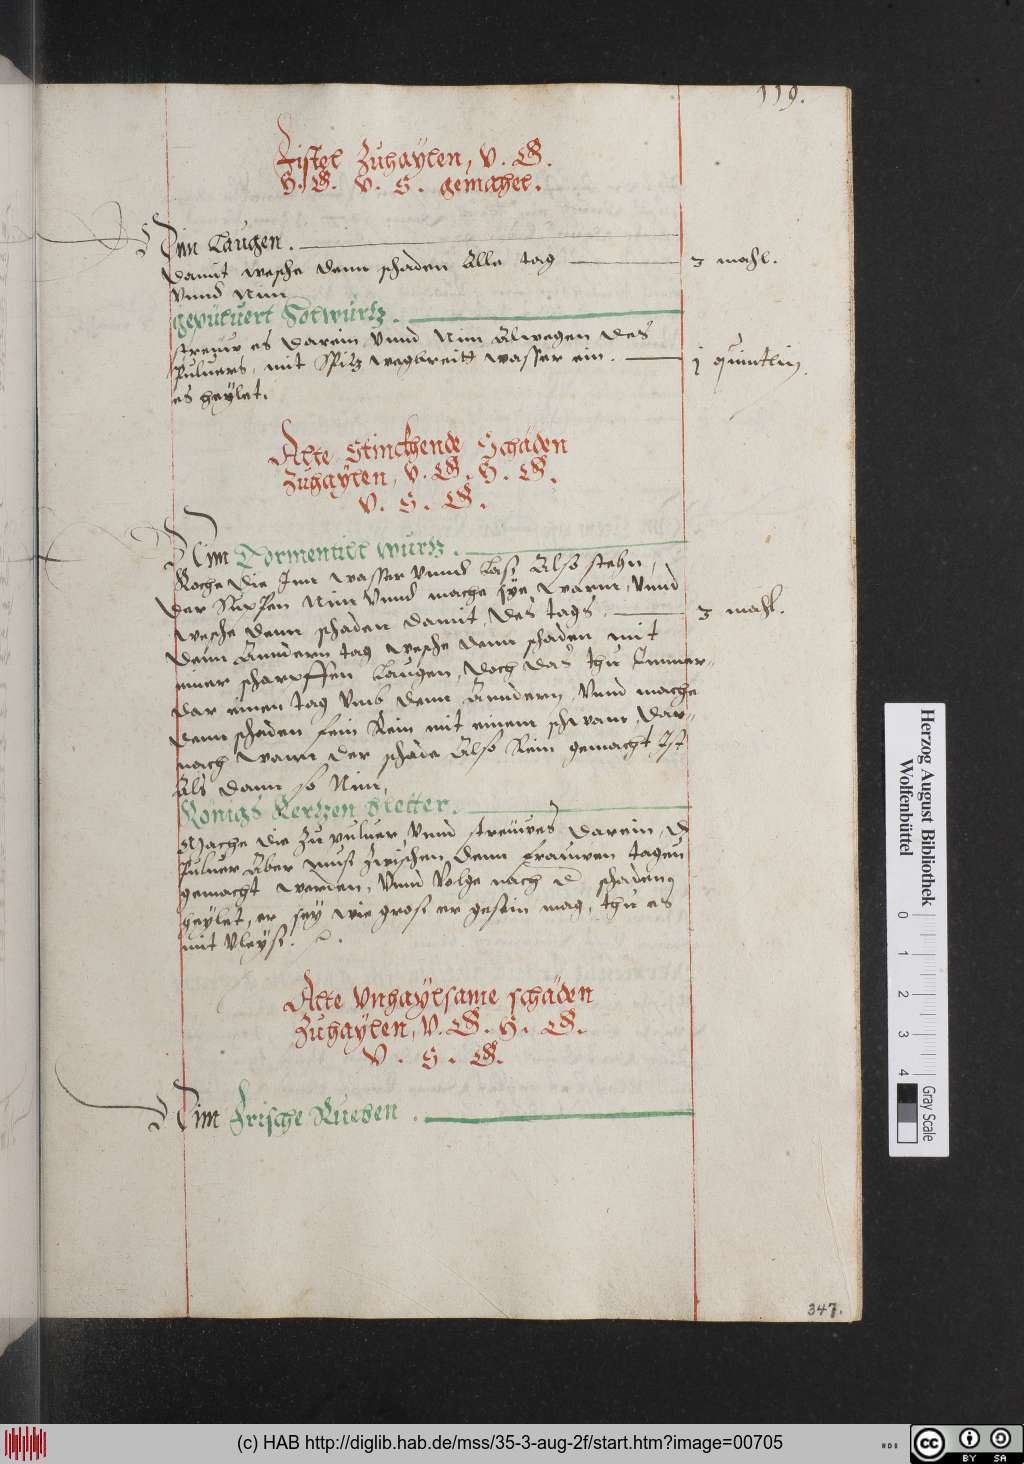 119.
Fistel Zuhaÿlen, V. G.
H. G. V. S. gemahel.
Nim Laugen.
Damit wesche denn schaden Alle tag 3 mahl.
Vnnd Nim
gepuluert Hotwurtz.
streuw es darein, Vnnd Nim Alwegen des
Puluers, mit Spitz wegbreitt wasser ein. j quintlin.
es heÿlet.
Alte Stinckhende Schäden
Zuhaÿlen, V. G. H. G.
V. S. G.
Nim Tormentill wurtz.
Koche die Inn wasser Vnnd Lass Also stehn,
Der Nim Vnnd mache sÿe warm, Vnnd
wesche denn schaden damit, des tags. 3 mahl.
Denn Anndern tag wesche denn schaden mit
einer scharpffen Laugen, doch das thu Immer-
dar einen tag Vmb denn Anndern, Vnnd mache
denn schaden fein Rein mit einem schwam, dar-
nach wann der schade Also Rein gemacht Ist
Als dann so Nim,
Königs Kertzen Bletter.
Mache die Zu puluer Vnnd streuwes darein, d
Puluer Aber muss Zwischen denn frauwen tagen
gemacht werden, Vnnd Volge nach d schaden
heÿlet, er seÿ wie gross er gesein mag, thu es
mit Vleÿss.
Alte Vnhaÿlsame schäden
Zuhaÿlen, V. G. H. G.
V. S. G.
Nim Frische Rueben.
347.
Herzog August Bibliothek
Wolfenbüttel
0 1 2 3 4
Gray Scale
(c) HAB http://diglib.hab.de/mss/35-3-aug-2f/start.htm?image=00705
cc BY SA